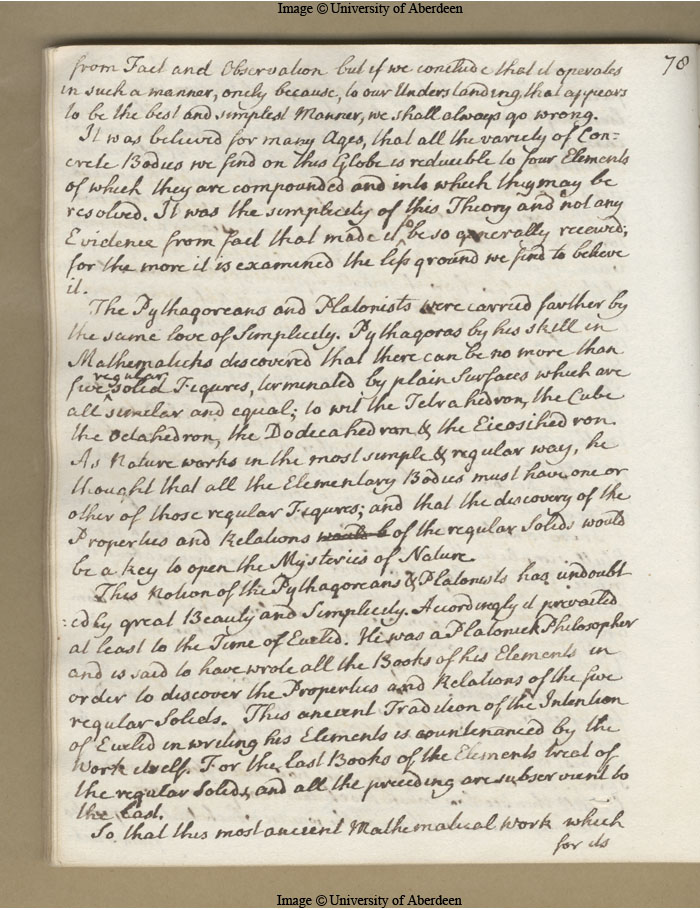 Image © University of Aberdeen
78
from Fact and Observation but if we conclude that it operates
in such a manner, onely because, to our Understanding, that appears
to be the best and simplest Manner, we shall always go wrong.
It was believed for many Ages, that all the variety of Con=
crete Bodies we find on this Globe is reducible to four Elements
of which they are compounded and into which they may be
resolved. It was the simplicity of this Theory and not any
Evidence from fact that made it be so generally received;
for the more it is examined the less ground we find to believe
it.
The Pythagoreans and Platonists were carried farther by
the same love of Simplicity. Pythagoras by his skill in
Mathematicks discovered that there can be no more than
regular
five solid Figures, terminated by plain Surfaces which are
all similar and equal; to wit the Tetrahedron, the Cube
the Octahedron, the Dodecahedron & the Eicosihedron.
As Nature works in the most simple & regular way, he
thought that all the Elementary Bodies must have one or
other of those regular Figures; and that the discovery of the
Properties and Relations of the regular Solids would
be a key to open the Mysteries of Nature
This Notion of the Pythagoreans & Platonists has undoubt
:edly great Beauty and Simplicity. Accordingly it prevailed
at least to the Time of Euclid. He was a Platonick Philosopher
and is said to have wrote all the Books of his Elements in
order to discover the Properties and Relations of the five
regular Solids. This ancient Tradition of the Intention
of Euclid in writing his Elements is countenanced by the
Work itself. For the last Books of the Elements treat of
the regular Solids, and all the preceding are subservient to
the last.
So that this most ancient Mathematical Work which
for its
Image © University of Aberdeen